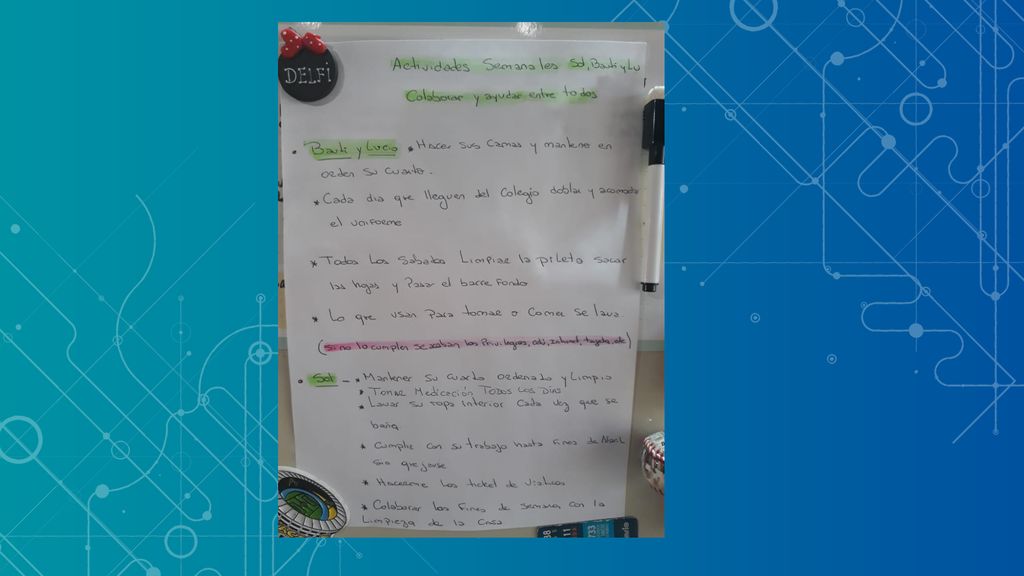 DELFI
Actividades Semanales Sol, Bauti y Lu
Colaborar y ayudar entre todos
• Bauti y Lucio * Hacer sus Camas y mantener en
orden su cuarto.
* Cada dia que lleguen del Colegio doblar y acomodar
el uniforme
* Todos los Sabados Limpiar la pileta sacar
las hojas y Pasar el barre fondo
* Lo que usan Para tomar o Comer se lava
(si no lo cumplen se acaban los Privilegios, Internet, tarjeta, etc)
• Sol - * Mantener su cuarto ordenado y Limpio
* Tomar Medicación TODOS LOS DIAS
* Lavar su ropa interior Cada vez que se
baña
* Cumplir con su trabajo hasta fines de Abril
sin quejarse
* Hacerme los ticket de viaticos
* Colaborar los fines de semana con la
Limpieza de la Casa